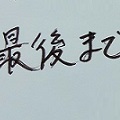 最後まで